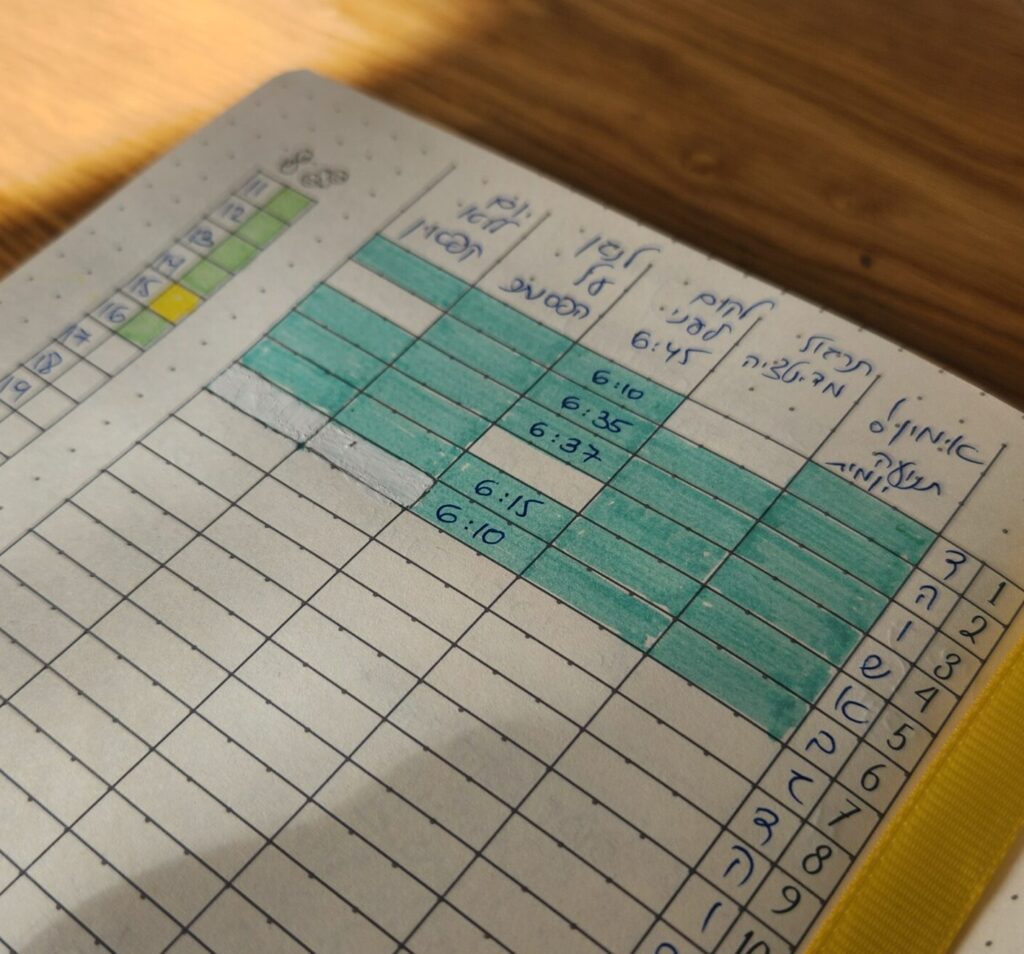 תנועה
יומית
תרגול
מדיטציה
לקום
לפני
6:45
לנגן
על
יומן
1 ד
6:10
2 ה
6:35
3 ו
6:37
4 ש
5 א
6:15
6 ב
6:10
7 ג
8 ד
9 ה
10 ו
11
12
13
14
15
16
17
18
19